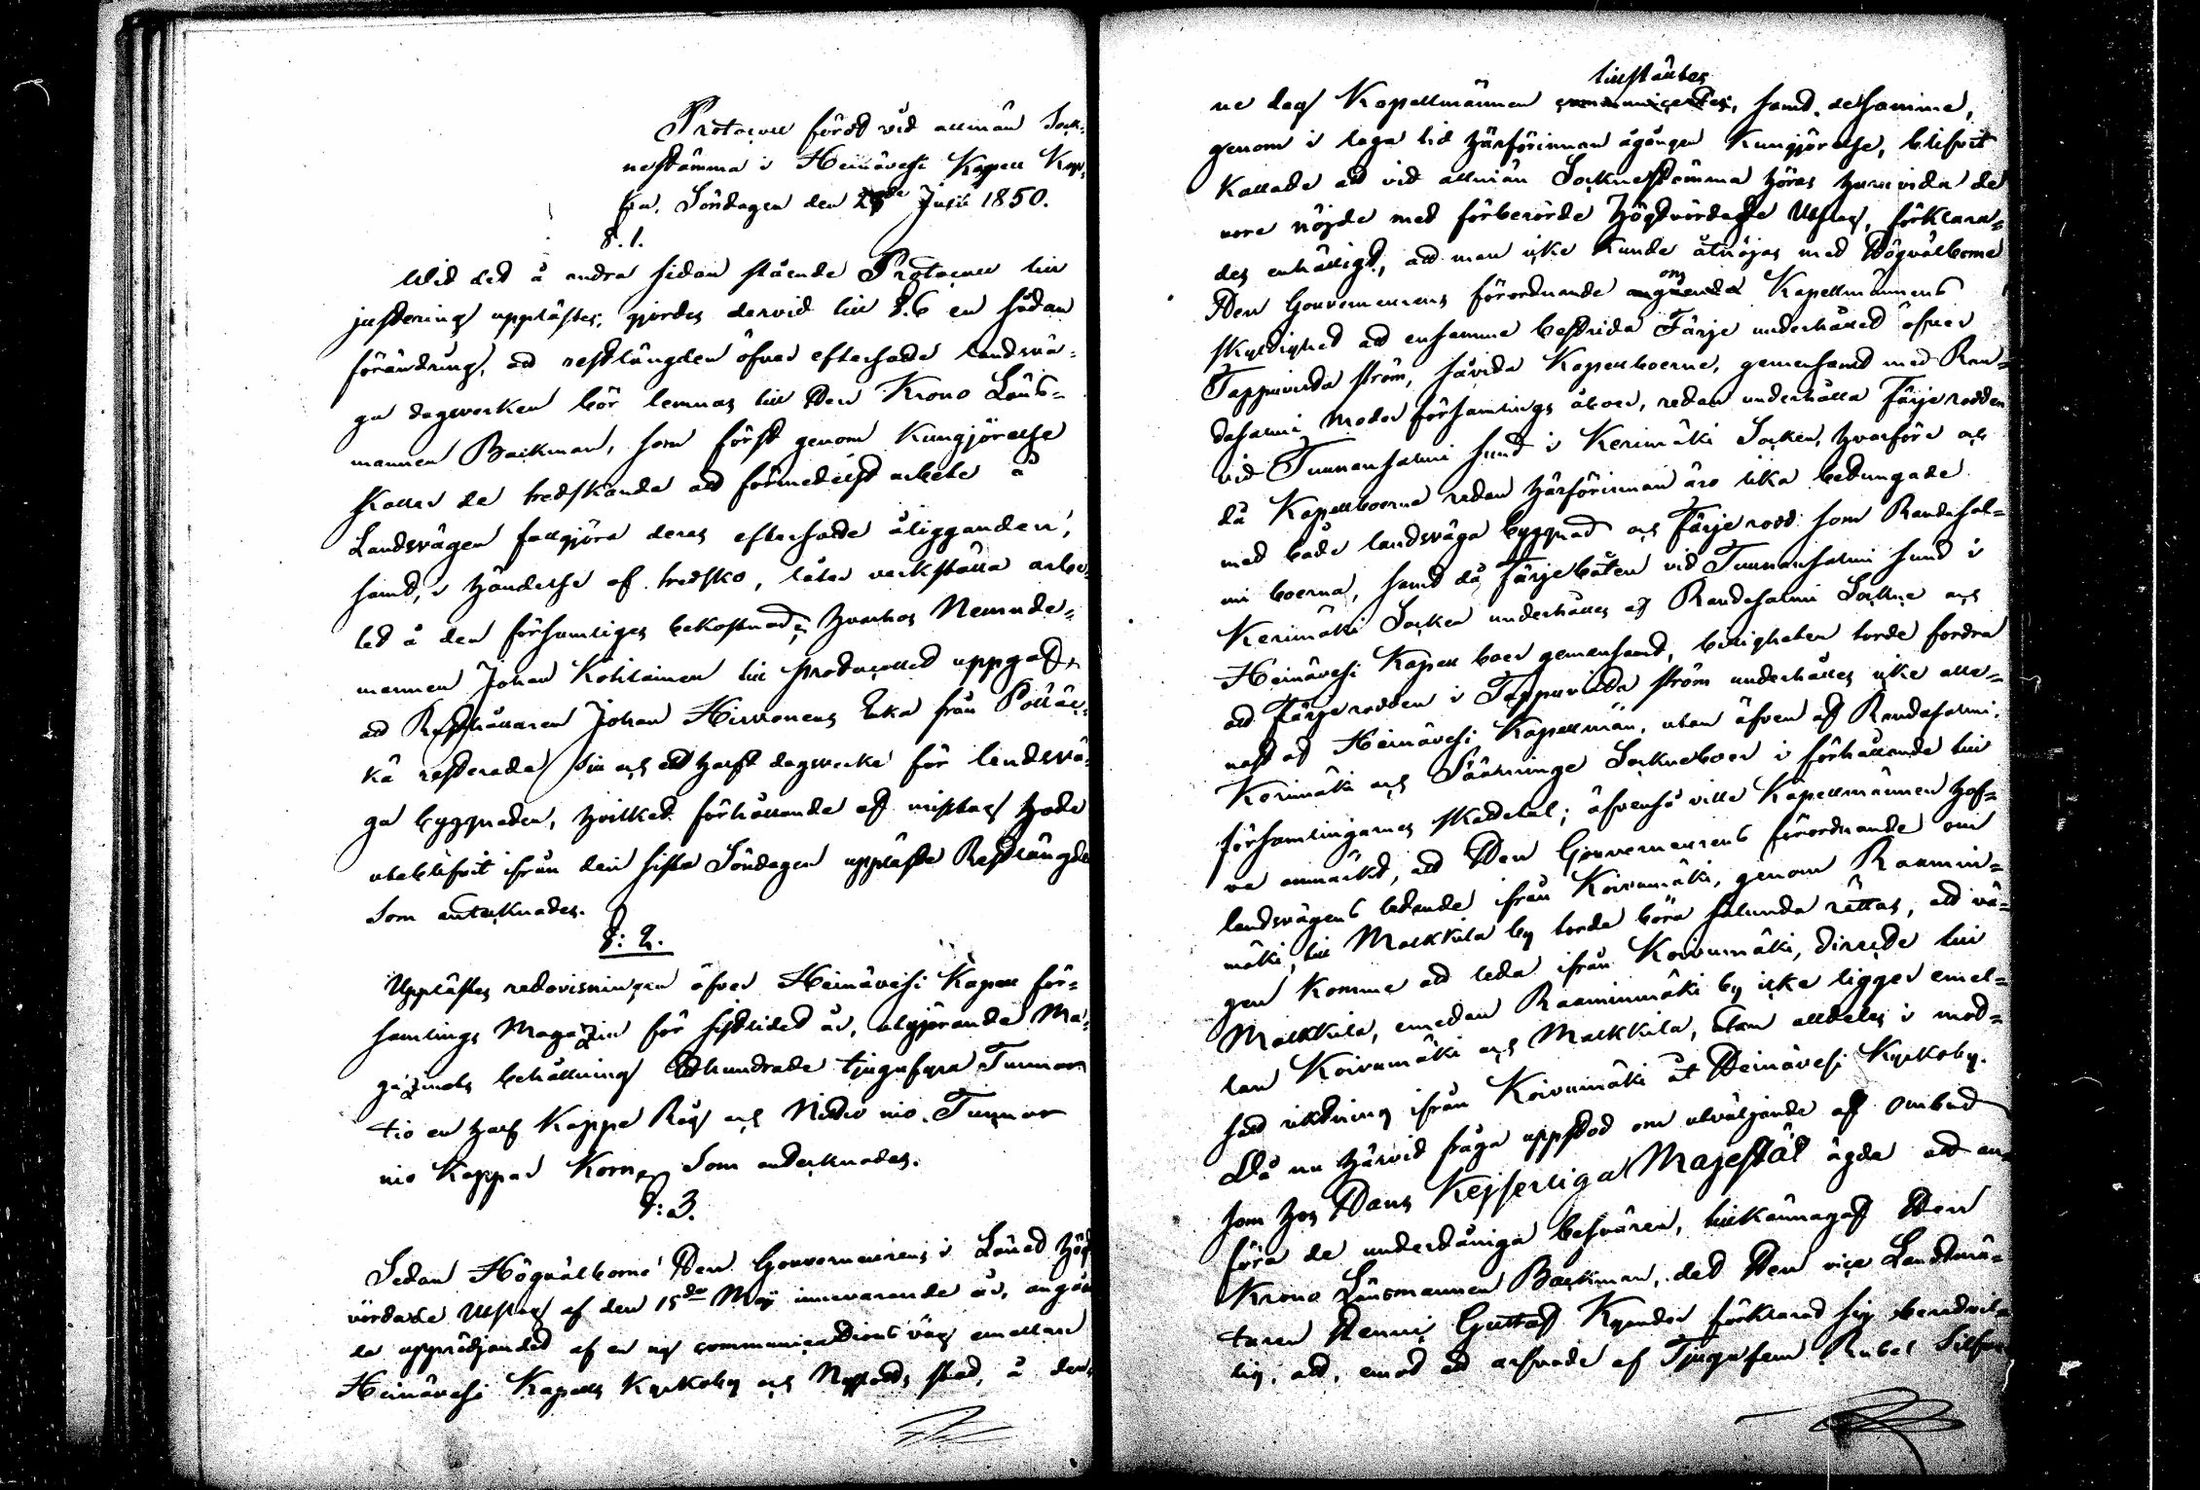 Protocoll fördt vid allmän Sock-
nestämma i Heinävesi Kapell Kyr-
ka, Söndagen den Julii 1850.
§. 1.
Wid det å andra sidan stående Protocoll till
justering uppläste, gjordes dervid till §. 6 en sådan
förändring, att restlängden öfver efterhatde landsvä-
ga dagsverken bör lemnas till Herr Krono Läns-
mannen Backman, som först genom Kungjörelse
kallar de tredskande att förmedelst arbete å
Landsvägen fullgöra deras efterhatde åligganden,
samt, i händelse af tredsko, låter verkställa arbe-
tet å den försumliges bekostnad; hvarhos Nemnde-
mannen Johan Kohlainen till protocollet uppgaf,
att Johan Hirvonens Enka från
resterade och ett halft dagsverke för landsvä-
ga byggnaden, hvilket förhållande af misstag hade
uteblifvit ifrån den sista Söndagen upplästa Restlängden
Som antecknades.
§: 2.
Upplästes redovisningen öfver Heinävesi Kapell för-
samlings Magazin för sistlidet år, utgörande Ma-
gazinets behållning Etthundrade tjugufyra Tunnor
tio en half Kappe Råg och Nittio nio Tunnor
nio Kappar Korn, Som antecknades.
§: 3.
Sedan Högvälborne Herr Gouverneurens i Länet hög
vördade Utslag af den 15de Maij innevarande år, angåen
de upprödjandet af en ny communications väg emellan
Heinävesi Kapells Kyrkoby och Nyslotts stad, å den-
tillstäldes
ne dag Kapellmännen communicerades, samt desamme,
genom i laga tid härförinnan ågången Kungjörelse, blifvit
Kallade att vid allmän Socknestämma höras huruvida de
vore nöjde med förberörde Högvördade Utslag, förklara-
des enhälligt, att man icke kunde åtnöjas med Högvälborne
om
Herr Gouverneurens förordnande angående Kapellmännens
skyldighet att ensamme bestrida Färje underhållet öfver
Tappuvirda ström, såvida Kapellboerne, gemensamt med Ran-
dasalmi moder församlings åboer, redan underhålla Färjerodden
vid Tunnansalmi sund i Kerimäki Socken, hvarföre och
då Kapellboerne redan härförinnan äro lika betungade
med både landsväga byggnad och Färje rodd som Randasal-
mi boerna, samt då Färjebåten vid Tunnansalmi sund i
Kerimäki Socken underhålles af Randasalmi Sockne och
Heinävesi Kapell boer gemensamt, billigheten torde fordra
att Färjerodden i Tappuvirda ström underhålles icke alle-
nast af Heinävesi Kapellmän, utan äfven af Randasalmi,
Kerimäki och Sääminge Sockneboer i förhållande till
församlingarnes skattetal; äfvenså ville Kapellmännen haf-
va anmärkt, att Herr Gouverneurens förordnande om
landsvägens ledande ifrån Koivumäki, genom Raamin-
mäki, till Malkkila by torde böra sålunda rättas, att vä-
gen komme att leda ifrån Koivumäki, directe till
Malkkila, emedan Raaminmäki by icke ligger emel-
lan Koivumäki och Malkkila, utan alldeles i mod-
satt riktning ifrån Koivumäki åt Heinävesi Kyrkoby.
Då nu härvid fråga uppstod om utväljande af ombud
som hos Hans Kejserliga Majestät ägde att an-
föra de underdåniga besvären, tillkännagaf Herr
Krono Länsmannen Backman, det Herr vice Landtmä-
taren Henric Gustaf Kyander förklarat sig beredvil-
lig, att, emot ett arfvode af Tjugufem Rubel Silfver